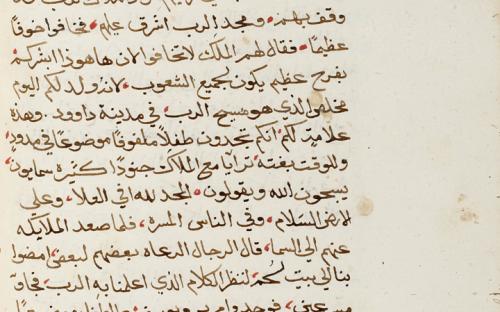 وقف بهم ومجد الرب اشرق عليهم فخافوا خوفا
عظيما فقال لهم الملاك لا تخافوا لان هاهوذا ابشركم
بفرح عظيم يكون لجميع الشعوب لانه ولد لكم اليوم
مخلص الذي هو مسيح الرب في مدينة داوود وهذه
علامة لكم انكم تجدون طفلا ملفوفا موضوعا في مدود
وللوقت بغتة ترايا مع الملاك جنودا كثيره سمايون
يسبحون الله ويقولون المجد لله في العلا وعلى
الارض السلام وفي الناس المسره فلما صعد الملايكه
عنهم الى السما قال الرجال الرعاه بعضهم لبعض امضوا
بنا الى بيت لحم لننظر الكلام الذي اعلمنا به الرب فجاوا
مسرعين فوجدوا مريم ويوسف